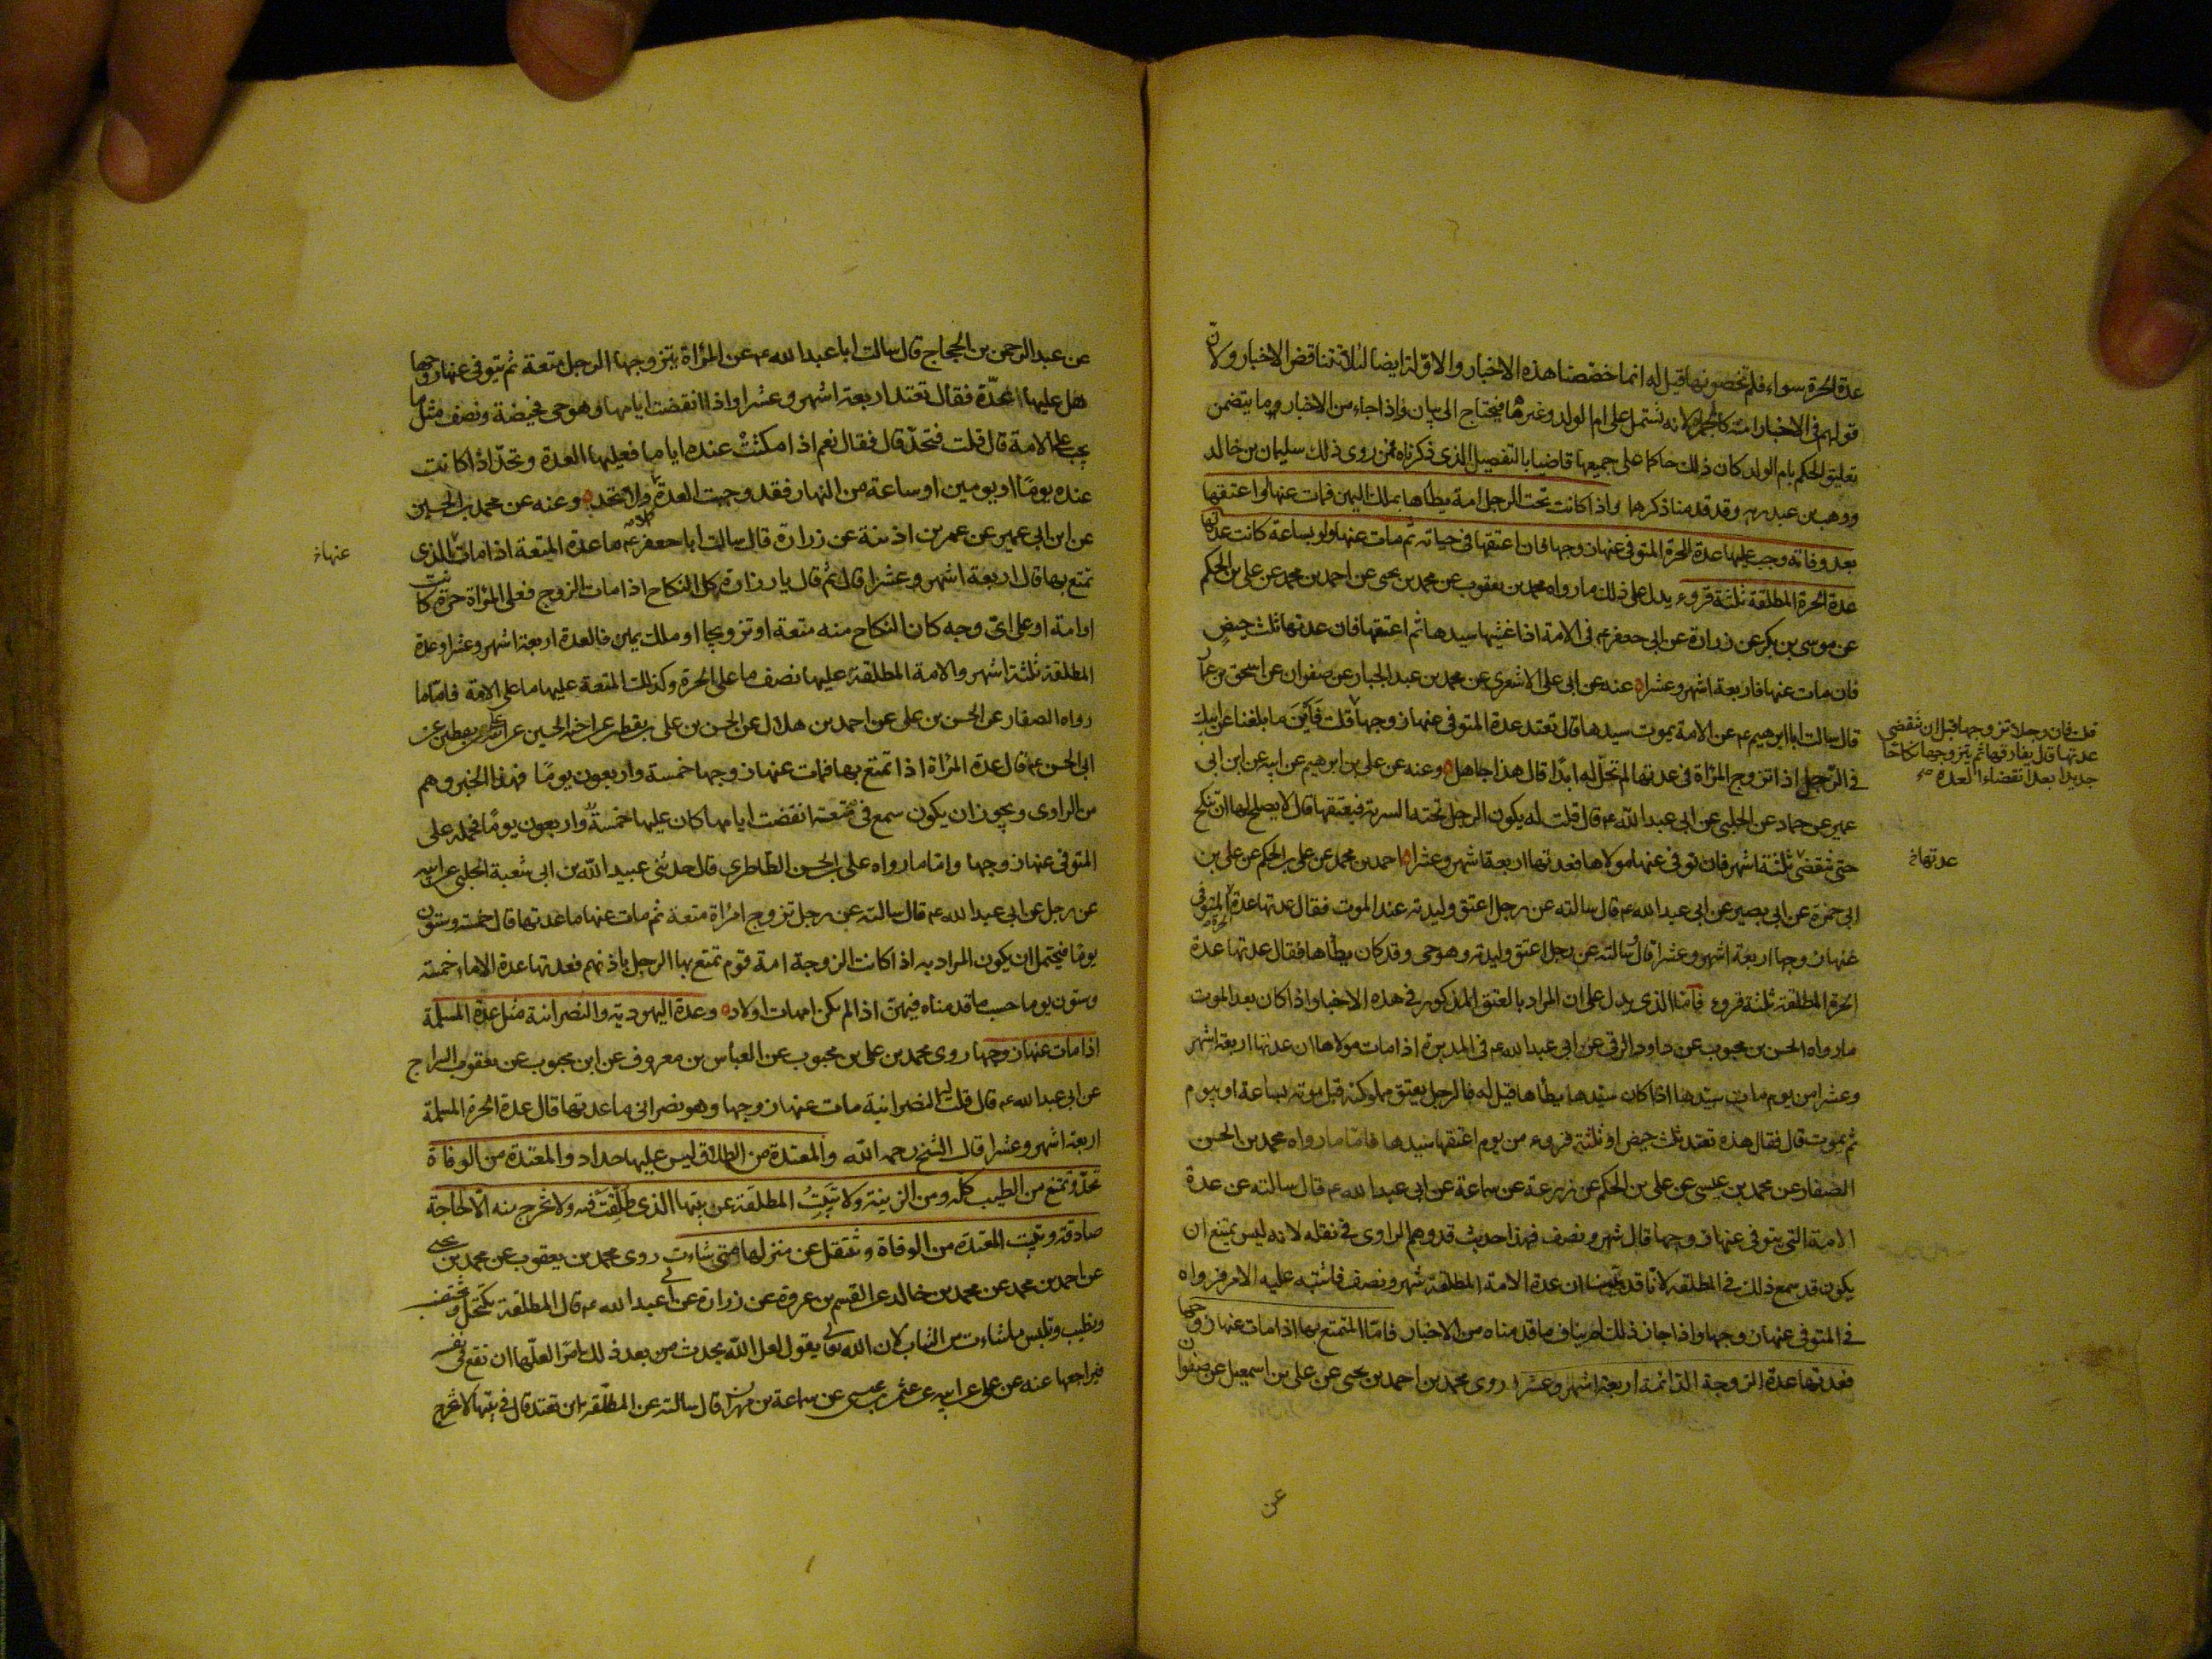 عدة الحرة سواء فلم تخصونها قيل له انما خصصنا هذه الاخبار والاولة ايضا لئلا تتناقض الاخبار ولان
قولهم في الاخبار امة كالحرة لانه تشتمل على ام الولد وغيرها فيحتاج الى بيان واذا جاء من الاخبار ما يتضمن
تعليق الحكم بام الولد كان ذلك حاكما على جميعها قاضيا بالتفصيل الذي ذكرناه فمن روى ذلك سليمان بن خالد
ووهب بن عبد ربه وقد قدمنا ذكرهما واذا كانت تحت الرجل امة يطأها بملك اليمين فمات عنها او اعتقها
بعد وفاته وجب عليها عدة الحرة المتوفى عنها زوجها فان اعتقها في حياته ثم مات عنها ولو بساعة كانت عدتها
عدة الحرة المطلقة ثلثة قروء يدل على ذلك ما رواه محمد بن يعقوب عن محمد بن يحيى عن احمد بن محمد عن علي بن الحكم
عن موسى بن بكر عن زرارة عن ابي جعفر ع في الامة اذا غشيها سيدها ثم اعتقها فان عدتها ثلث حيض
فان مات عنها فاربعة اشهر وعشرا عنه عن ابي علي الاشعري عن محمد بن عبد الجبار عن صفوان عن اسحق بن عمار
قال سالت ابا ابرهيم ع عن الامة يموت سيدها قال تعتد عدة المتوفى عنها زوجها قلت فاين ما بلغنا عن ابيك
في الرجل اذا تزوج المرأة في عدتها لم تحل له ابدا قال هذا جاهل وعنه عن علي بن ابرهيم عن ابيه عن ابن ابي
عمير عن حماد عن الحلبي عن ابي عبد الله ع قال قلت له يكون الرجل تحته السرية فيعتقها قال لا يصلح لها ان تنكح
حتى تنقضي ثلثة اشهر فان توفي عنها مولاها فعدتها اربعة اشهر وعشرا احمد بن محمد عن علي بن الحكم عن علي بن
ابي حمزة عن ابي بصير عن ابي عبد الله ع قال سالته عن رجل اعتق وليدته عند الموت فقال عدتها عدة الحرة المتوفى
عنها زوجها اربعة اشهر وعشرا قال وسالته عن رجل اعتق وليدته وهو حي وقد كان يطأها فقال عدتها عدة
الحرة المطلقة ثلثة قروء فاما الذي يدل على ان المراد بالعتق المذكور في هذه الاخبار اذا كان بعد الموت
ما رواه الحسن بن محبوب عن داود الرقي عن ابي عبد الله ع في المدبرة اذا مات مولاها ان عدتها اربعة اشهر
وعشرا من يوم مات سيدها اذا كان سيدها يطأها قيل له فالرجل يعتق مملوكته قبل موته بساعة او بيوم
ثم يموت قال فقال هذه تعتد ثلث حيض او ثلثة قروء من يوم اعتقها سيدها فاما ما رواه محمد بن الحسن
الصفار عن محمد بن عيسى عن علي بن الحكم عن زرعة عن سماعة عن ابي عبد الله ع قال سالته عن عدة
الامة التي يتوفى عنها زوجها قال شهر ونصف فهذا حديث قد وهم الراوي في نقله لانه ليس يمتنع ان
يكون قد سمع ذلك في المطلقة لانا قد بينا ان عدة الامة المطلقة شهر ونصف فاشتبه عليه الامر فرواه
في المتوفى عنها زوجها واذا جاز ذلك لم يناف ما قدمناه من الاخبار فاما المتمتع بها اذا مات عنها زوجها
فعدتها عدة الزوجة الدائمة اربعة اشهر وعشرا روى محمد بن احمد بن يحيى عن علي بن اسمعيل عن صفوان
قلت فان رجلا تزوجها قبل ان تنقضي
عدتها قال يفارقها ثم يتزوجها نكاحا
جديدا بعد انقضاء العدة صح
عدتها خ
عن
عن عبد الرحمن بن الحجاج قال سالت ابا عبد الله ع عن المرأة يتزوجها الرجل متعة ثم يتوفى عنها زوجها
هل عليها العدة فقال تعتد اربعة اشهر وعشرا واذا انقضت ايامها وهو حي فحيضة ونصف مثل ما
يجب على الامة قال قلت فتحد قال فقال نعم اذا مكثت عنده اياما فعليها العدة وتحد اذا كانت
عنده يوما او يومين او ساعة من النهار فقد وجبت العدة ولا تحد وعنه عن محمد بن الحسين
عن ابن ابي عمير عن عمر بن اذينة عن زرارة قال سالت ابا جعفر ع ما عدة المتعة اذا مات الذي
تمتع بها قال اربعة اشهر وعشرا قال ثم قال يا زرارة كل النكاح اذا مات الزوج فعلى المرأة حرة كانت
او امة او على اي وجه كان النكاح منه متعة او تزويجا او ملك يمين فالعدة اربعة اشهر وعشرا وعدة
المطلقة ثلثة اشهر والامة المطلقة عليها نصف ما على الحرة وكذلك المتعة عليها ما على الامة فاما ما
رواه الصفار عن الحسن بن علي عن احمد بن هلال عن الحسن بن علي بن يقطين عن اخيه الحسين عن علي بن يقطين عن
ابي الحسن ع قال عدة المرأة اذا تمتع بها فمات عنها زوجها خمسة واربعون يوما فهذا الخبر وهم
من الراوي ويجوز ان يكون سمع في متعة انقضت ايامها كان عليها خمسة واربعون يوما فحمله على
المتوفى عنها زوجها واما ما رواه علي بن الحسن الطاطري قال حدثني عبيد الله بن ابي شعبة الحلبي عن ابيه
عن رجل عن ابي عبد الله ع قال سالته عن رجل تزوج امرأة متعة ثم مات عنها ما عدتها قال خمسة وستون
يوما فيحتمل ان يكون المراد به اذا كانت الزوجة امة قوم تمتع بها الرجل باذنهم فعدتها عدة الاماء خمسة
وستون يوما حسب ما قدمناه فيهن اذا لم يكن امهات اولاد وعدة اليهودية والنصرانية مثل عدة المسلمة
اذا مات عنها زوجها روى محمد بن علي بن محبوب عن العباس بن معروف عن ابن محبوب عن يعقوب السراج
عن ابي عبد الله ع قال قلت له النصرانية مات عنها زوجها وهو نصراني ما عدتها قال عدة الحرة المسلمة
اربعة اشهر وعشرا قال الشيخ رحمه الله والمعتدة من الطلاق ليس عليها حداد والمعتدة من الوفاة
تحد وتمتنع من الطيب كله ومن الزينة ولا تبيت المطلقة عن بيتها الذي طلقت فيه ولا تخرج منه الا لحاجة
صادقة وتبيت المعتدة من الوفاة وتنتقل عن منزلها متى شاءت روى محمد بن يعقوب عن محمد بن يحيى
عن احمد بن محمد عن محمد بن خالد عن القسم بن عروة عن زرارة عن ابي عبد الله ع قال المطلقة تكتحل وتختضب
وتطيب وتلبس ما شاءت من الثياب لان الله تعالى يقول لعل الله يحدث من بعد ذلك امرا لعلها ان تقع في نفسه
فيراجعها عنه عن علي عن ابيه عن عثمن بن عيسى عن سماعة بن مهران قال سالته عن المطلقة اين تعتد قال في بيتها لا تخرج
عنها خ